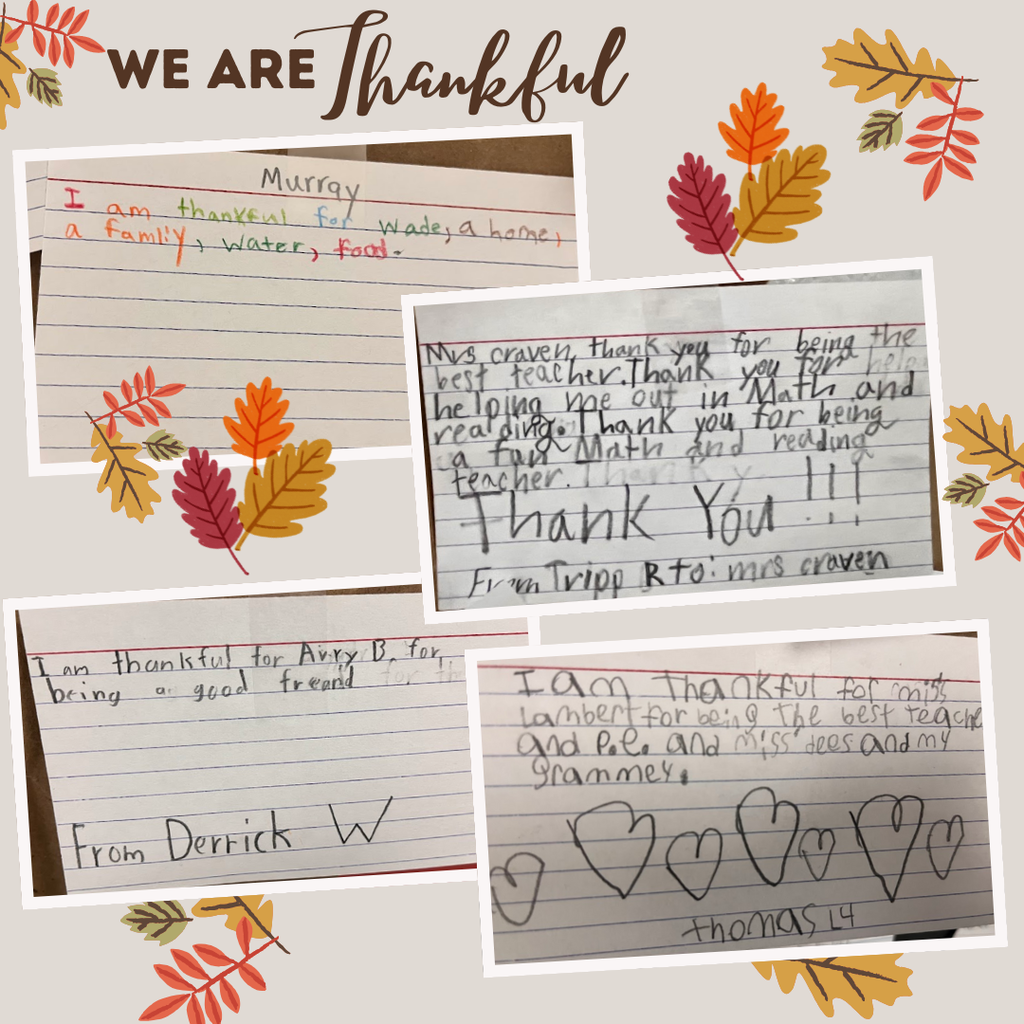 WE ARE Thankful
Murray
I am thankful for Wade, a home,
a famliy, water, food.
Mrs craven, thank you for being the
best teacher. Thank you for help
helping me out in Math and
realding. Thank you for being
a fun Math and redding
teacher. Thank y
Thank You !!!
From Tripp R to: mrs craven
I am thankful for Avry B. for
being a good freand for th
From Derrick W
I am Thankful for miss
Lambert for being the best teache
and P.e. and miss dees and my
grammey.
thomas L4